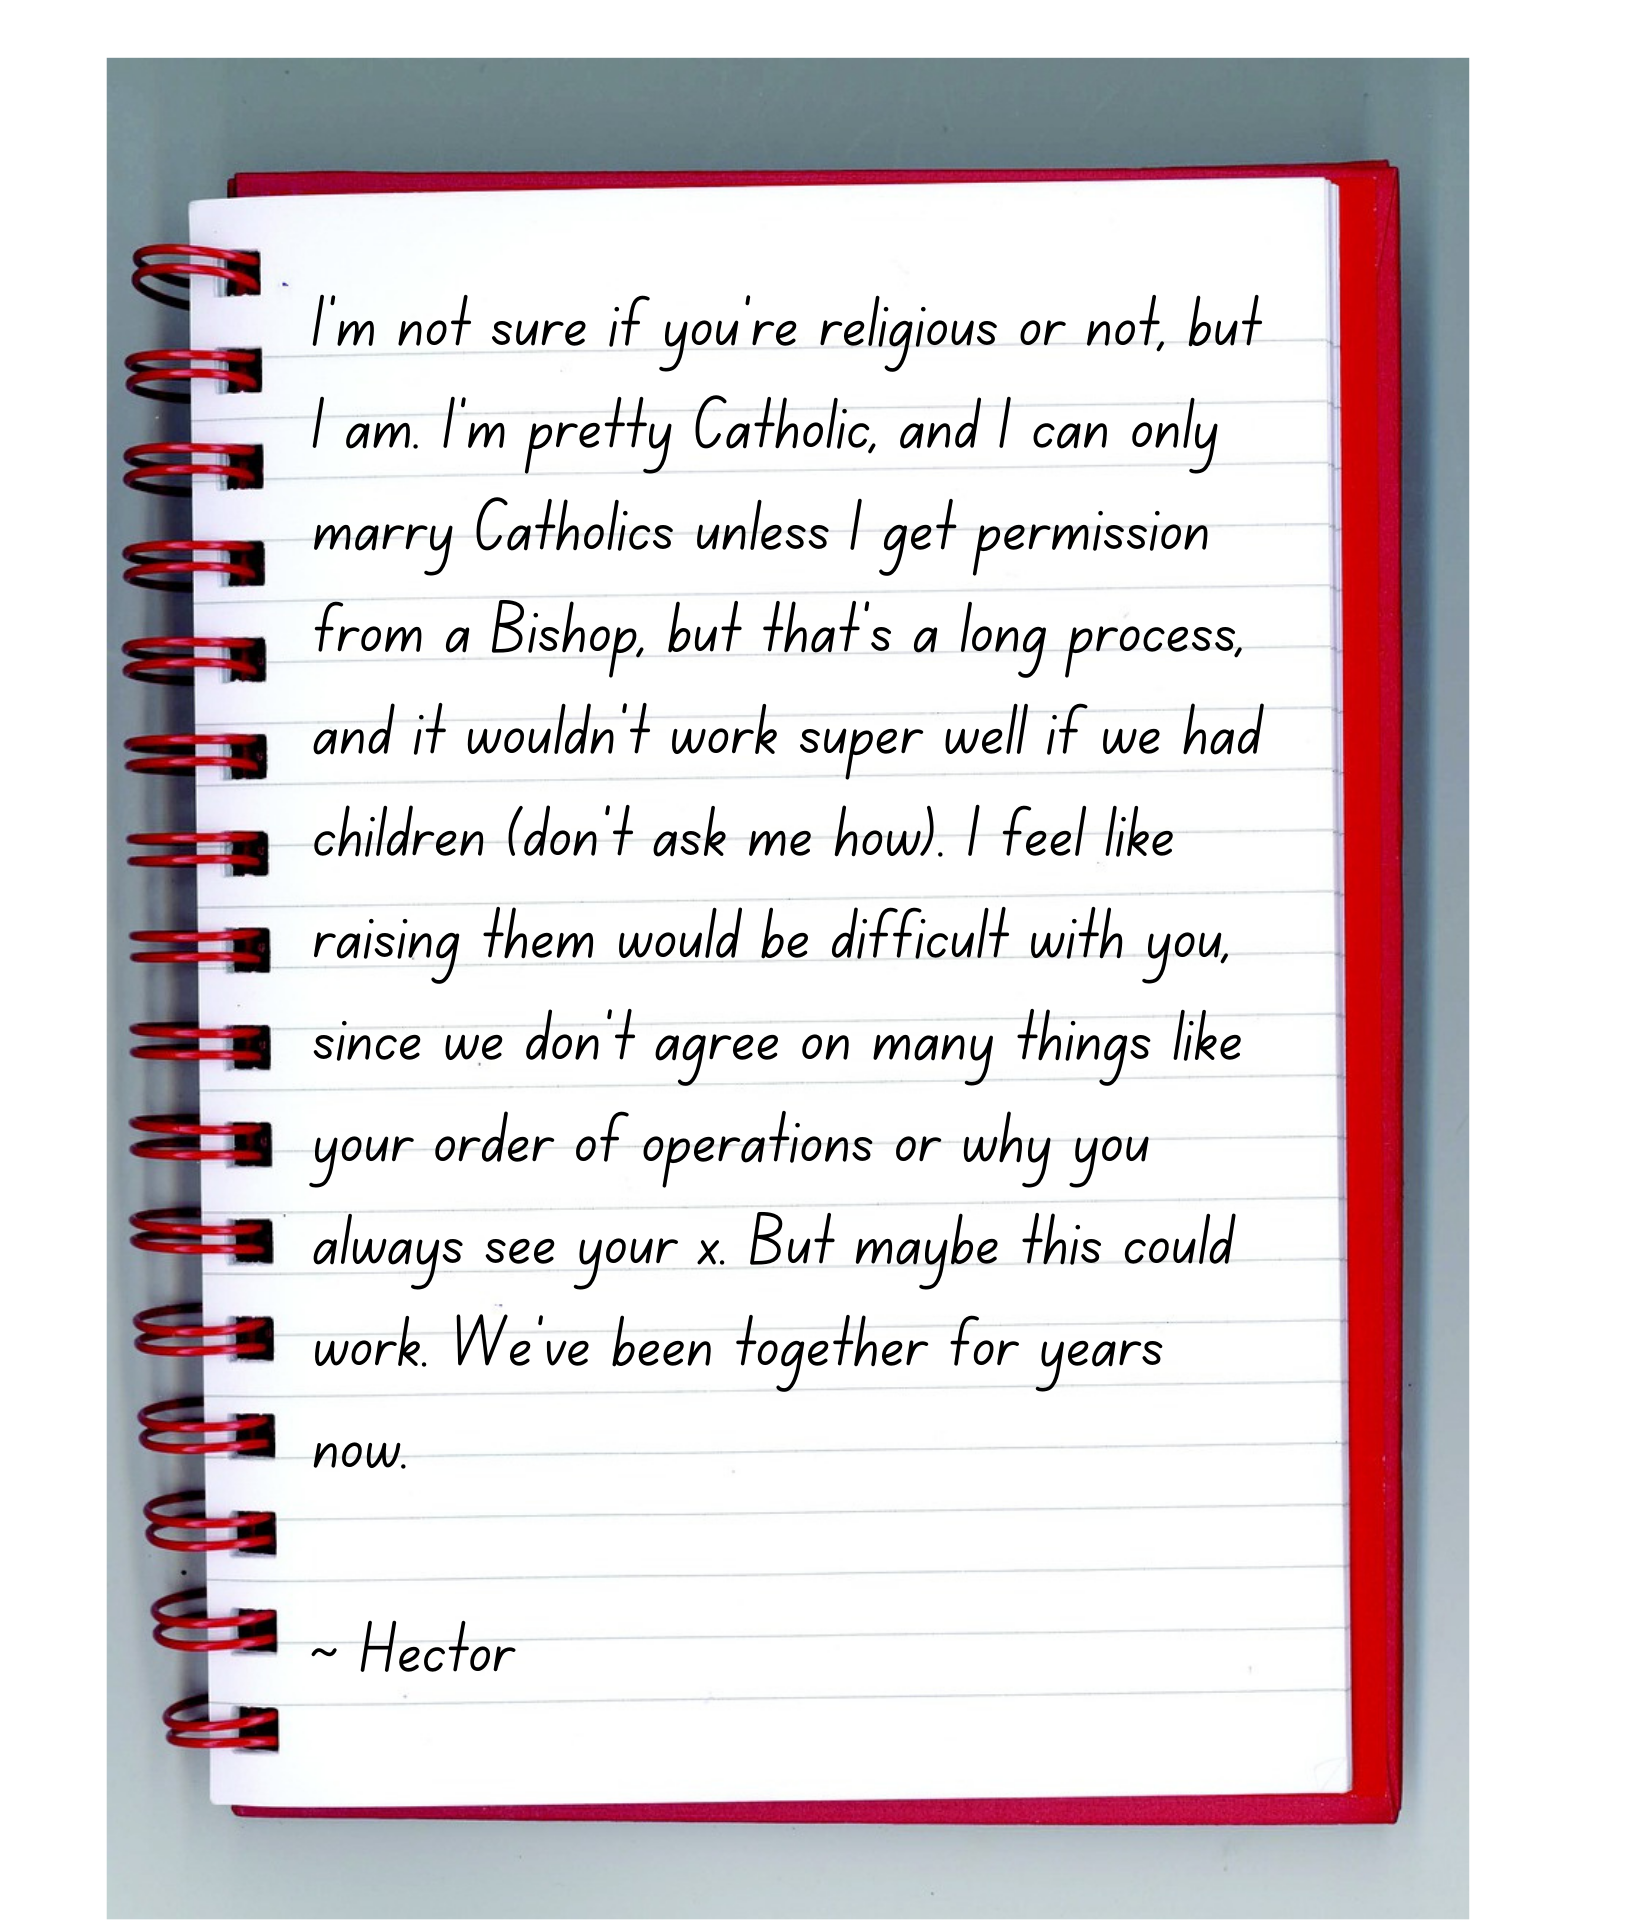 I'm not sure if you're religious or not, but
I am. I'm pretty Catholic, and I can only
marry Catholics unless I get permission
from a Bishop, but that's a long process,
and it wouldn't work super well if we had
children (don't ask me how). I feel like
raising them would be difficult with you,
since we don't agree on many things like
your order of operations or why you
always see your x. But maybe this could
work. We've been together for years
now.
~ Hector